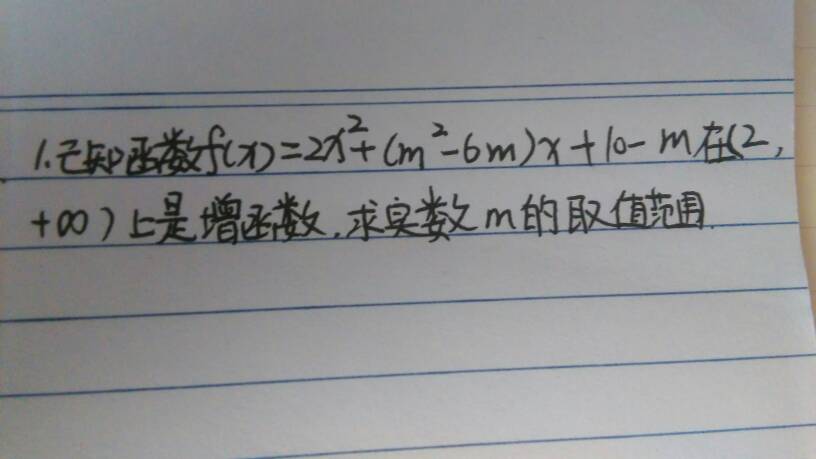 1.已知函数f(x)=2x²+(m²-6m)x+10-m在(2,
+∞)上是增函数.求实数m的取值范围.